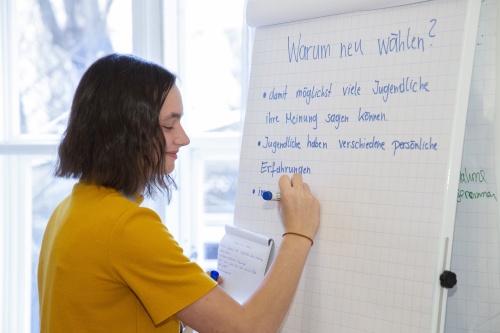 Warum neu wählen?
• damit möglichst viele Jugendliche
ihre Meinung sagen können.
• Jugendliche haben verschiedene persönliche
Erfahrungen
•